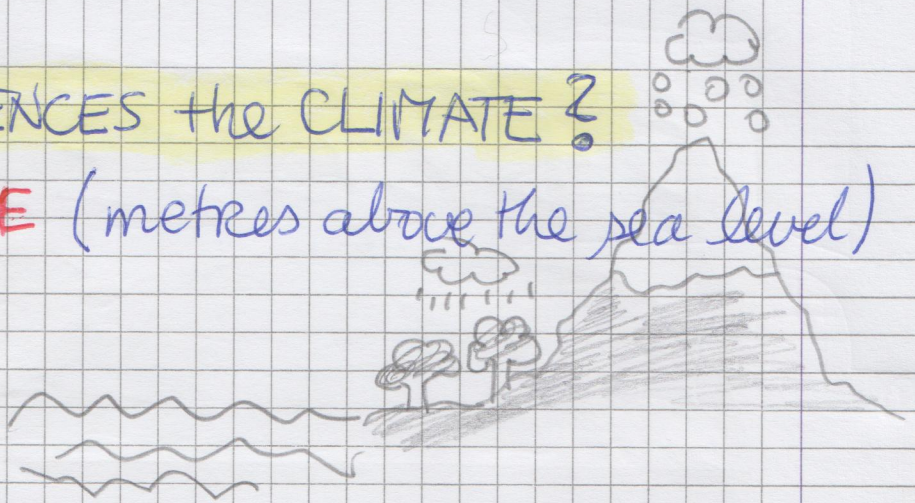 ENCES the CLIMATE?
E (metres above the sea level)